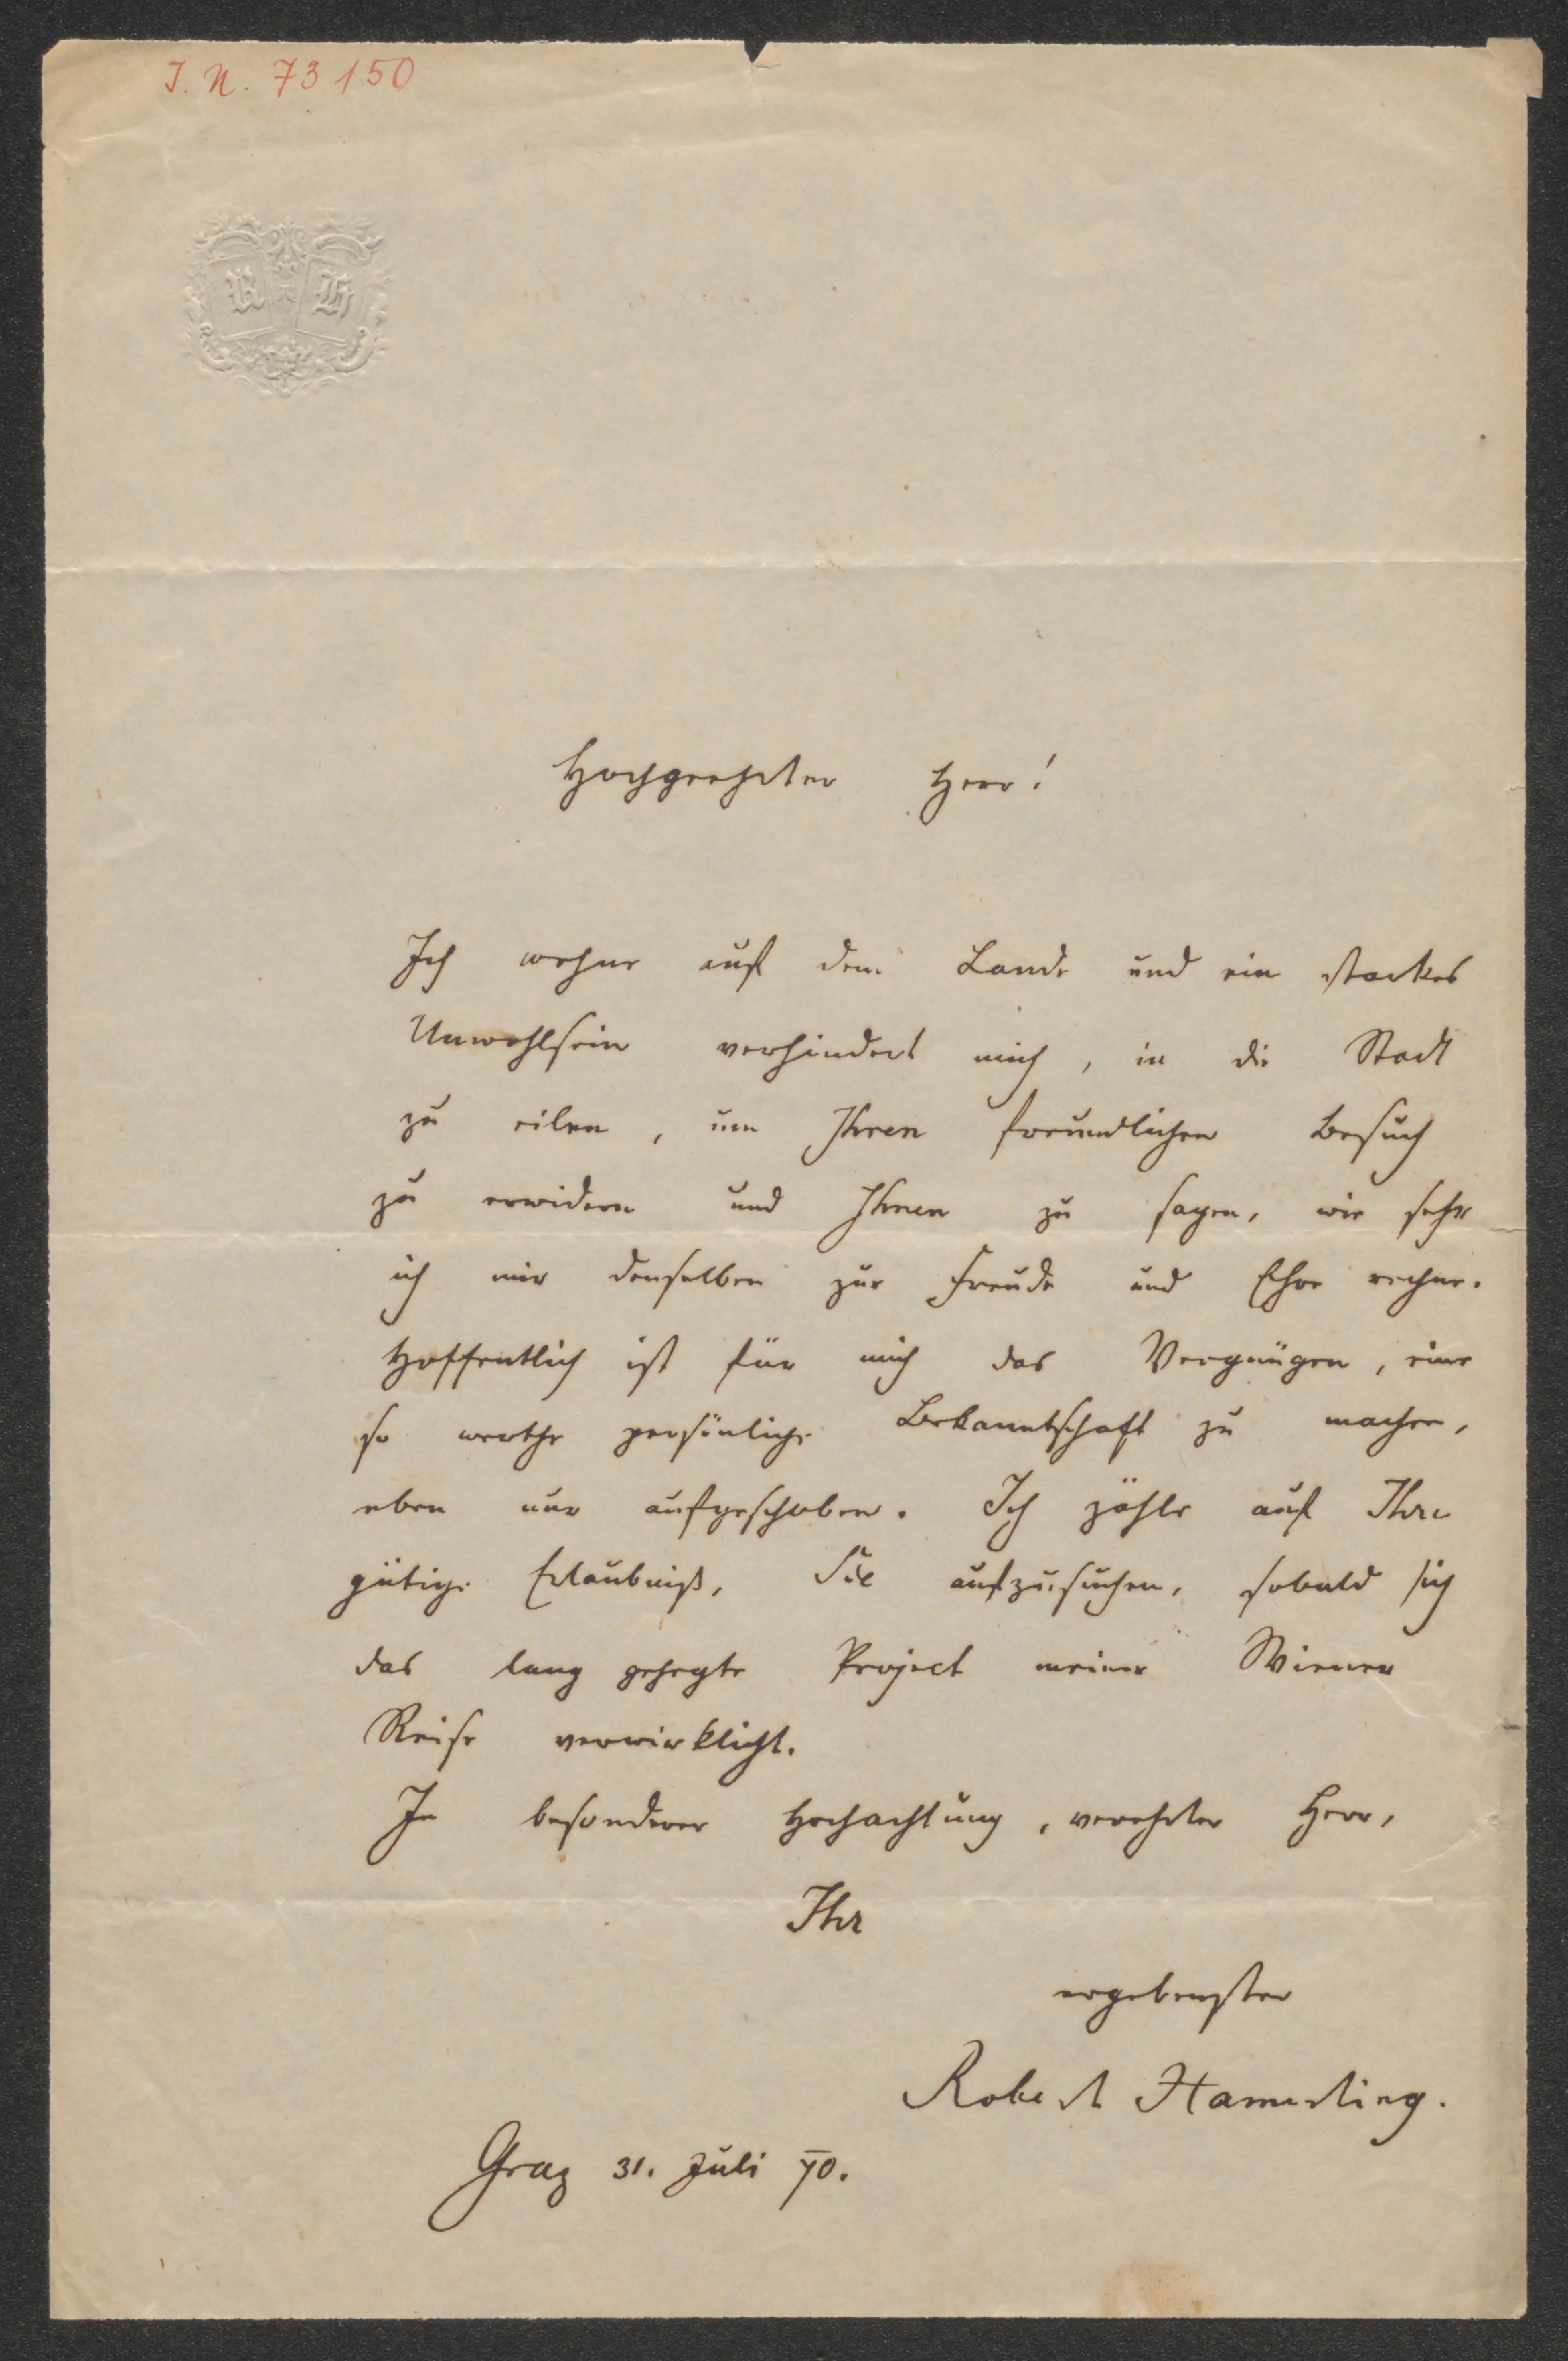 I. N. 73150
R H
Hochgeehrter Herr!
Ich wohne auf dem Lande und ein starkes
Unwohlsein verhindert mich, in die Stadt
zu eilen, um Ihren freundlichen Besuch
zu erwidern und Ihnen zu sagen, wie sehr
ich mir denselben zur Freude und Ehre rechne.
Hoffentlich ist für mich das Vergnügen, eine
so werthe persönliche Bekanntschaft zu machen,
eben nur aufgeschoben. Ich zähle auf Ihre
gütige Erlaubniß, Sie aufzusuchen, sobald sich
das lang gehegte Project meiner Wiener
Reise verwirklicht.
In besonderer Hochachtung, verehrter Herr,
Ihr
ergebenster
Robert Hamerling.
Graz 31. Juli 70.